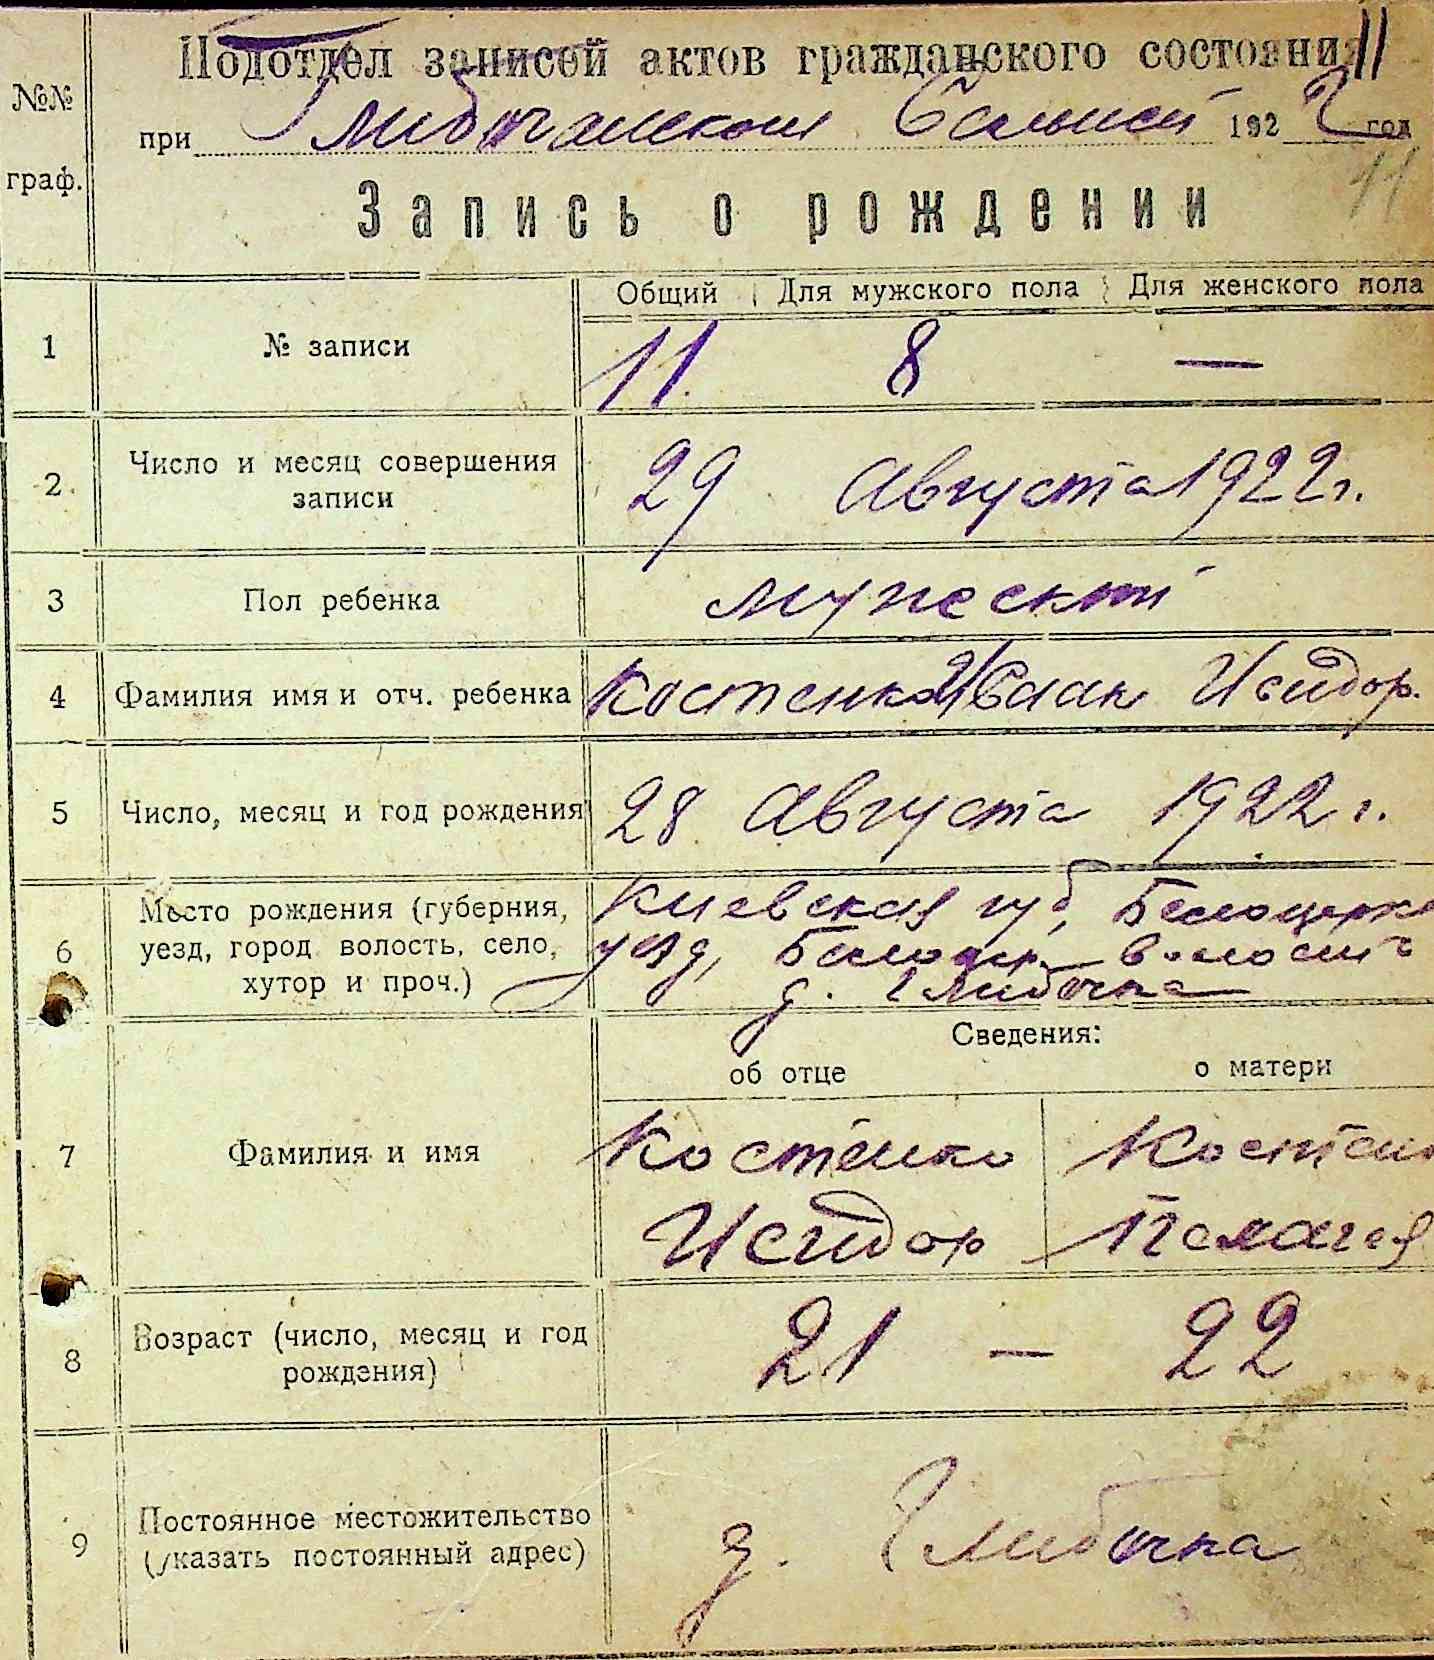 11
Подотдел записей актов гражданского состояния
№№ граф.
при Глибочанском Сельисп 1922 год
11
Запись о рождении
Общий Для мужского пола Для женского пола
1 № записи 11. 8 —
2 Число и месяц совершения
записи 29 Августа 1922 г.
3 Пол ребенка мужеский
4 Фамилия имя и отч. ребенка Костенко Исаак Исидор.
5 Число, месяц и год рождения 28 Августа 1922 г.
6 Место рождения (губерния, Киевская губ, Белоцерк
уезд, город волость, село, уезд, Белоцер. волость
хутор и проч.) д. Глибочка
Сведения:
об отце о матери
7 Фамилия и имя Костенко Костен
Исидор Пелагея
8 Возраст (число, месяц и год
рождения) 21 — 22
9 Постоянное местожительство
(указать постоянный адрес) д. Глибочка